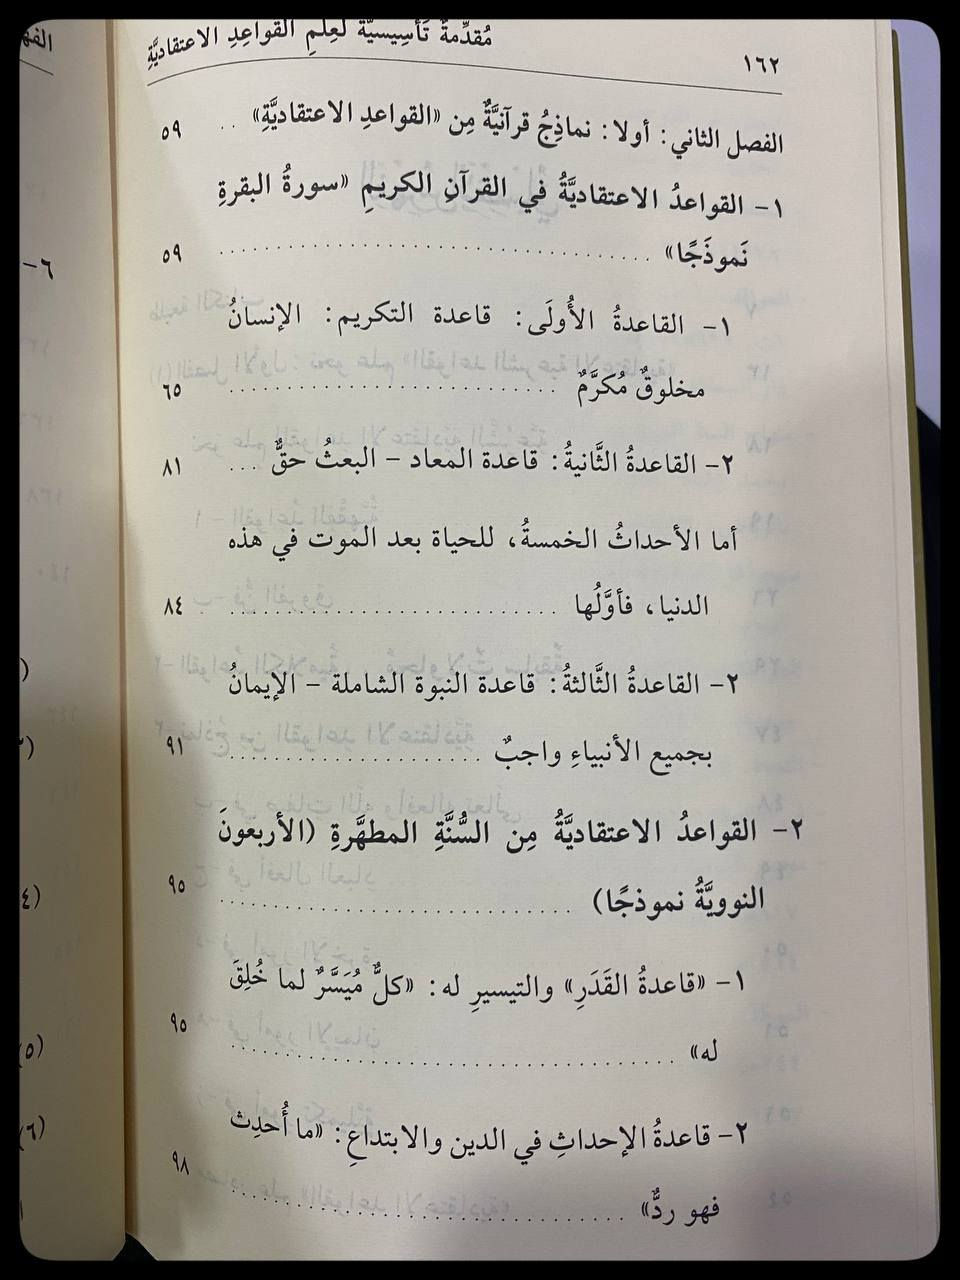 مُقدِّمةٌ تَأسِيسيَّة لعِلمِ القواعِدِ الاعتقاديَّةِ
١٦٢
الفصل الثاني: أولا: نماذِجُ قرآنيَّةٌ مِن «القواعدِ الاعتقاديَّةِ» . . ٥٩
١- القواعدُ الاعتقاديَّةُ في القرآنِ الكريمِ «سورةُ البقرةِ
نَموذَجًا» . . . . . . . . . . ٥٩
١- القاعدةُ الأُولَى: قاعدة التكريم: الإنسانُ
مخلوقٌ مُكرَّمٌ . . . . . . . . . . ٦٥
٢- القاعدةُ الثَّانيةُ: قاعدة المعاد - البعثُ حقٌّ . . . ٨١
أما الأحداثُ الخمسةُ، للحياة بعد الموت في هذه
الدنيا، فأوَّلُها . . . . . . . . . . ٨٤
٢- القاعدةُ الثَّالثةُ: قاعدة النبوة الشاملة - الإيمانُ
بجميع الأنبياءِ واجبٌ . . . . . . . . . . ٩١
٢- القواعدُ الاعتقاديَّةُ مِن السُّنَّةِ المطهَّرةِ (الأربعونَ
النوويَّةُ نموذجًا) . . . . . . . . . . ٩٥
١- «قاعدةُ القَدَرِ» والتيسيرِ له: «كلٌّ مُيَسَّرٌ لما خُلِقَ
له» . . . . . . . . . . ٩٥
٢- قاعدةُ الإحداثِ في الدين والابتداعِ: «ما أُحدِث
فهو ردٌّ» . . . . . . . . . . ٩٨
الفه
٦-
(٥)
(٦)